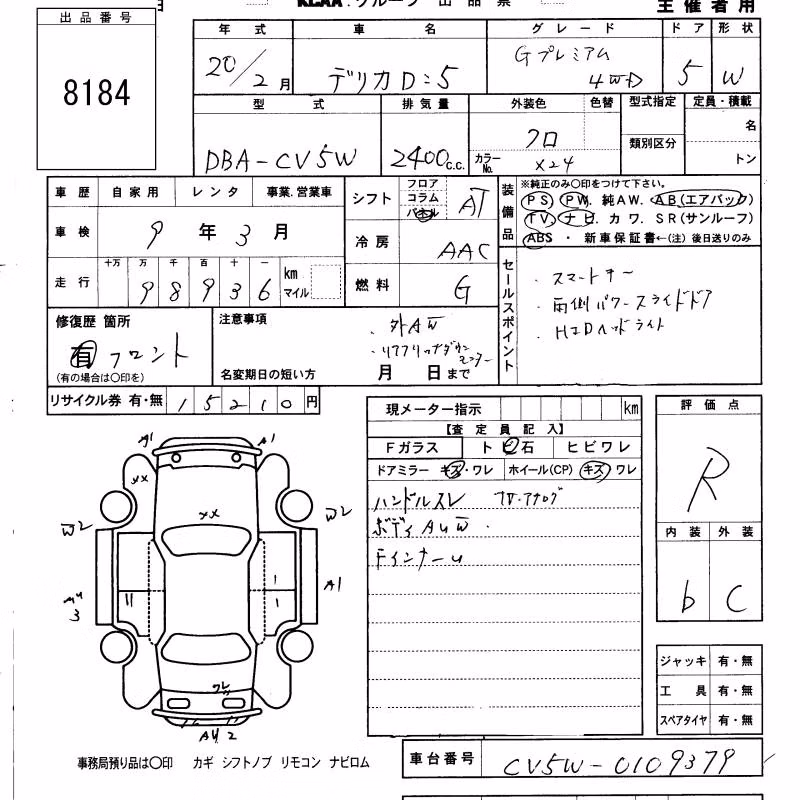 KCAA.グループ 出品票
主催者用
出品番号
8184
年式 車名 グレード ドア 形状
20/2月 デリカD:5 Gプレミアム 4WD 5 W
型式 排気量 外装色 色替 型式指定 定員・積載
DBA-CV5W 2400c.c. クロ
カラーNo. X24
類別区分
名
トン
車歴 自家用 レンタ 事業.営業車
シフト フロア コラム パネル AT
装備品
※純正のみ〇印をつけて下さい。
PS PW. 純AW. AB(エアバック)
TV ナビ. カワ. SR(サンルーフ)
ABS ・ 新車保証書←(注) 後日送りのみ
車検 9年3月
冷房 AAC
走行 十万 万 千 百 十 一 km マイル
9 8 9 3 6
燃料 G
セールスポイント
・スマートキー
・両側パワースライドドア
・HIDヘッドライト
修復歴 箇所
有 フロント
(有の場合は〇印を)
注意事項
・外AW
・リアフリップダウンモニター
名変期日の短い方 月 日まで
リサイクル券 有・無 15210円
現メーター指示 km
【査定員記入】
Fガラス ト ビ 石 ヒビワレ
ドアミラー キズ・ワレ ホイール(CP) キズ ワレ
ハンドルスレ
ボディAUW.
評価点
R
内装 外装
b C
A1 A1
XX
XX
W2 W2
A1
3
ワレ
AU2
ジャッキ 有・無
工具 有・無
スペアタイヤ 有・無
事務局預り品は〇印 カギ シフトノブ リモコン ナビロム
車台番号 CV5W-0109379